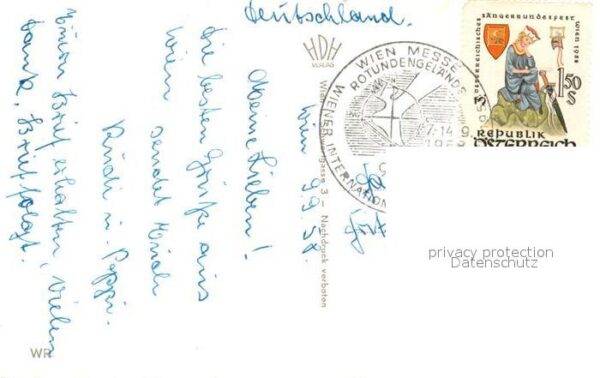 Deutschland.
HDH
WIEN MESSE
ROTUNDENGELÄNDE
WIENER INTERNATION
7.-14.9.
1958
ÖSTERREICHISCHES SÄNGERBUNDESFEST WIEN 1958
1.50
S
REPUBLIK
ÖSTERREICH
Wien 9.9.58.
Meine Lieben!
Die besten Grüße aus
Wien sendet Euch
Rudi u. Peppi.
Euren Brief erhalten, vielen
Dank, Brief folgt.
gasse 3 - Nachdruck verboten
WR
privacy protection
Datenschutz